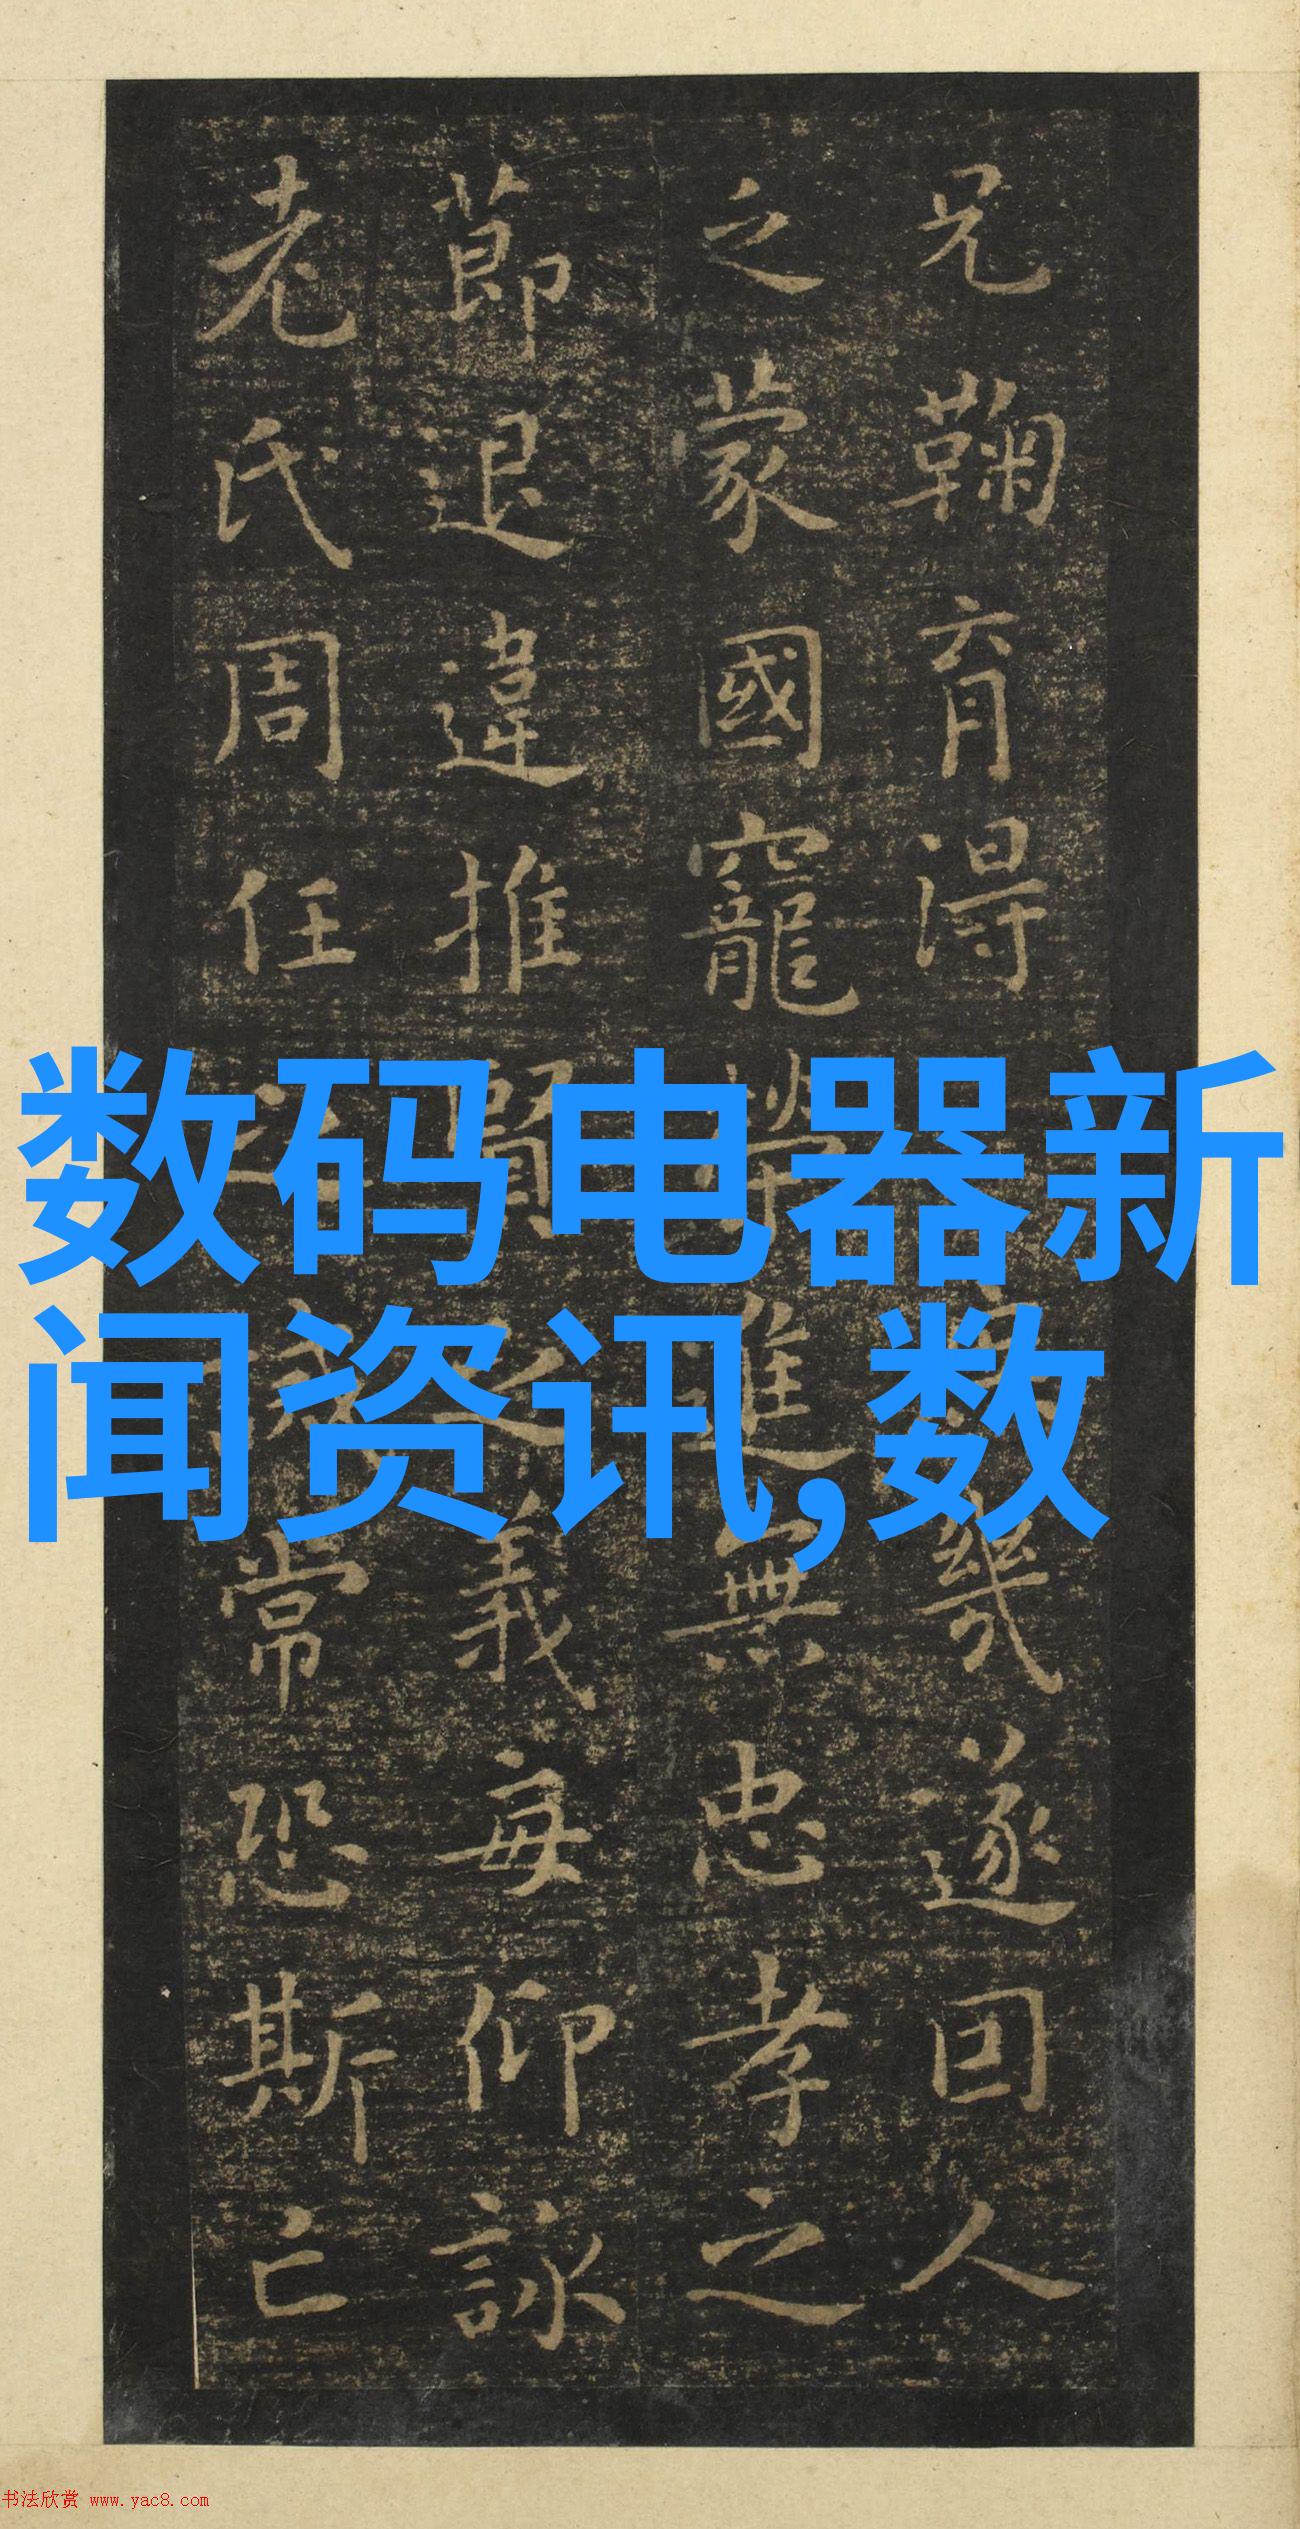 兄鞠育得幾遂回人
之蒙國寵進無忠孝之
莭退違推賢之義每仰詠
老氏周任之常恐斯亡
数码电器新
闻资讯,数
书法欣赏 www.yac8.com